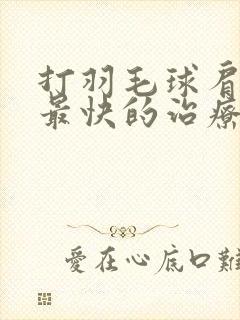 打羽毛球肩
最快的治療
愛在心底口難